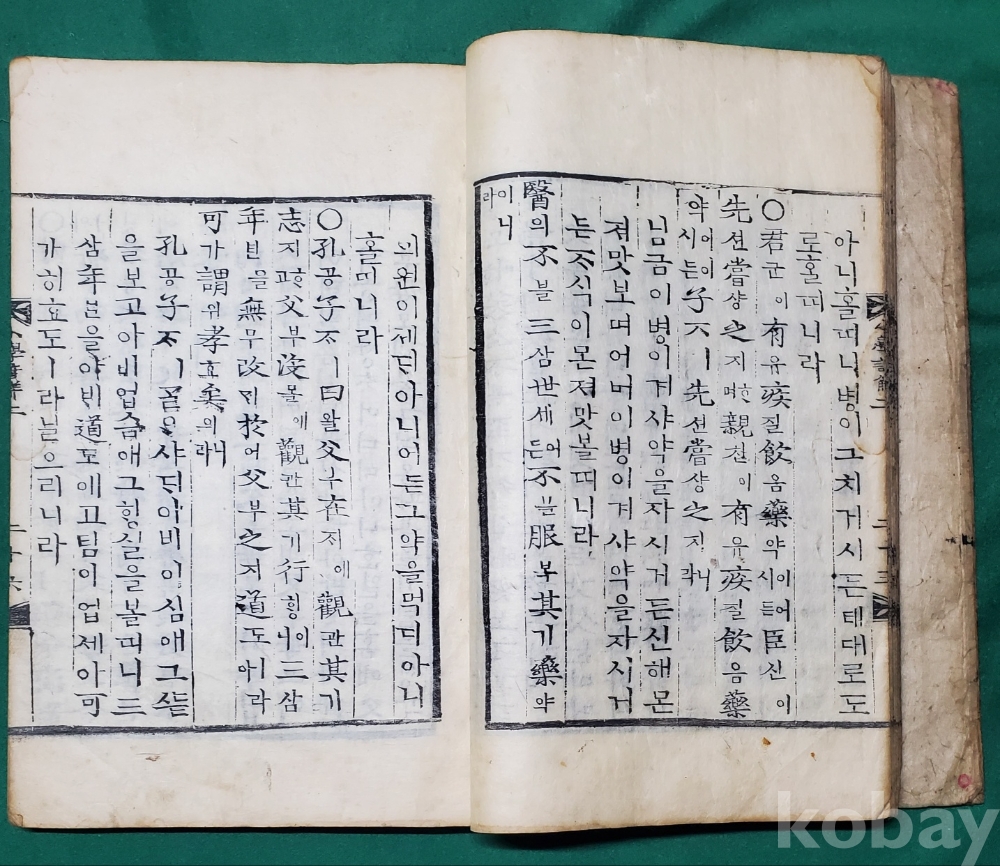 아니홀띠니병이그치거시든톄대로도
로홀띠니라
○君군이有유疾질飮음藥약이어시든臣신이
先션嘗샹之지며親친이有유疾질飮음藥
약이어시든子ᄌᆞㅣ先션嘗샹之지니라
님금이병이겨샤약을자시거든신해몬
져맛보며어버이병이겨샤약을자시거
든ᄌᆞ식이몬져맛볼띠니라
醫의不블三삼世세어든不블服복其기藥약
이니라
의원이세ᄃᆡ아니어든그약을먹디아니
홀띠니라
○孔공子ᄌᆞㅣ曰왈父부在ᄌᆡ애觀관其기
志지고父부沒몰애觀관其기行ᄒᆡᆼ이니三삼
年년을無무改ᄀᆡ於어父부之지道도ㅣ라아
可가謂위孝효矣의니라
孔공子ᄌᆞㅣᄀᆞᆯᄋᆞ샤ᄃᆡ아비이심애그ᄠᅳᆮ
을보고아비업슴애그ᄒᆡᆼ실을볼띠니三
삼年년을아ᄇᆡ道도애고팀이업세아可
가히효도ㅣ라닐으리니라
kobay